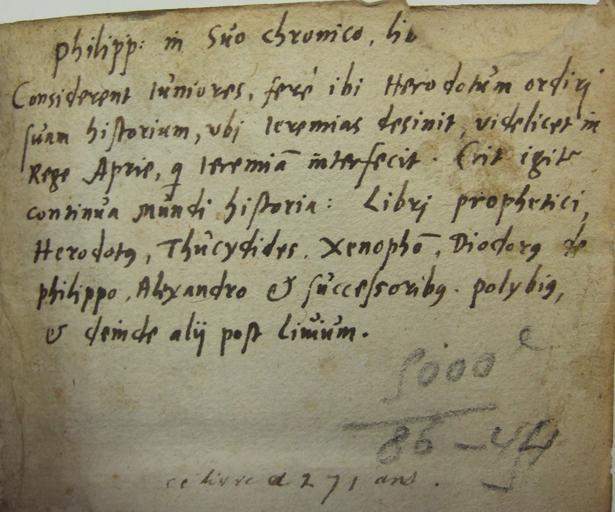 philipp: in Suo chronico, lib
Considerent Iuniores, ferè ibi Herodotum ordiri
suam historium, vbi Ieremias desinit, videlicet in
Rege Aprie, q Ieremiā interfecit. Erit igitr
continua mundi historia: Libri prophetici,
Herodotꝰ, Thucydides, Xenophō, Diodorꝰ de
philippo, Alexandro & successoribꝰ. polybiꝰ,
& deinde alij post Liuium.
5000 e
86-44
ce livre a 271 ans.